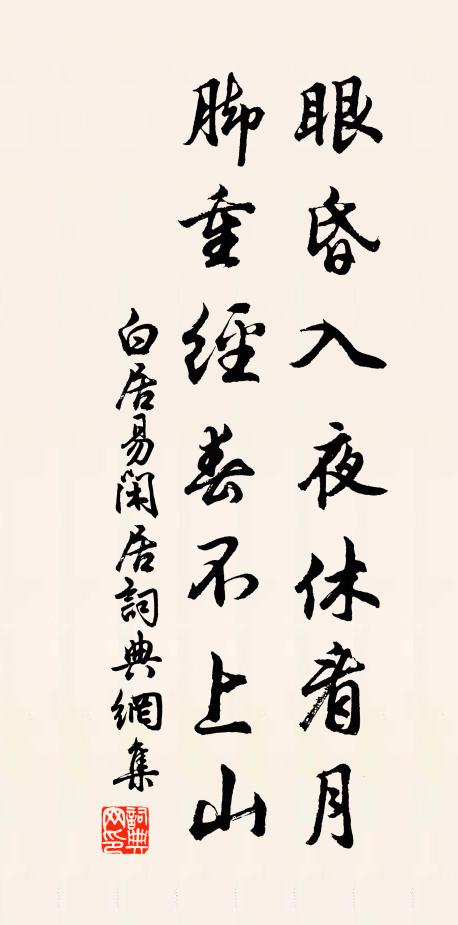 眼昏入夜休看月
脚重經春不上山
白居易閑居詞典網集
詞典網印